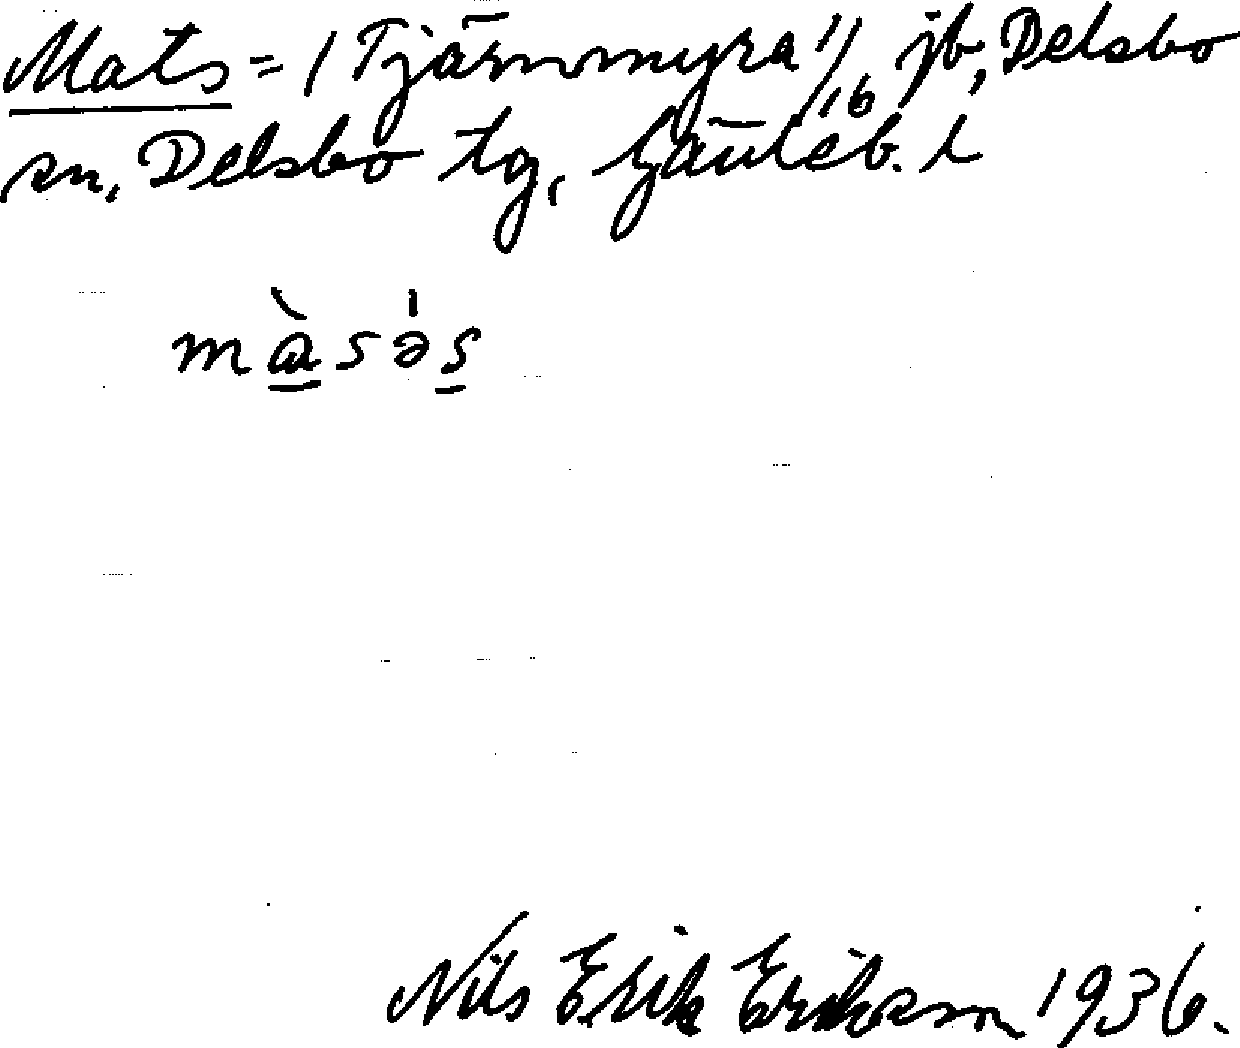 Mats = (Tjärnmyra 1)/16 jb, Delsbo
sn, Delsbo tg, Gävleb. l
màsə's
Nils Erik Erikson 1936.